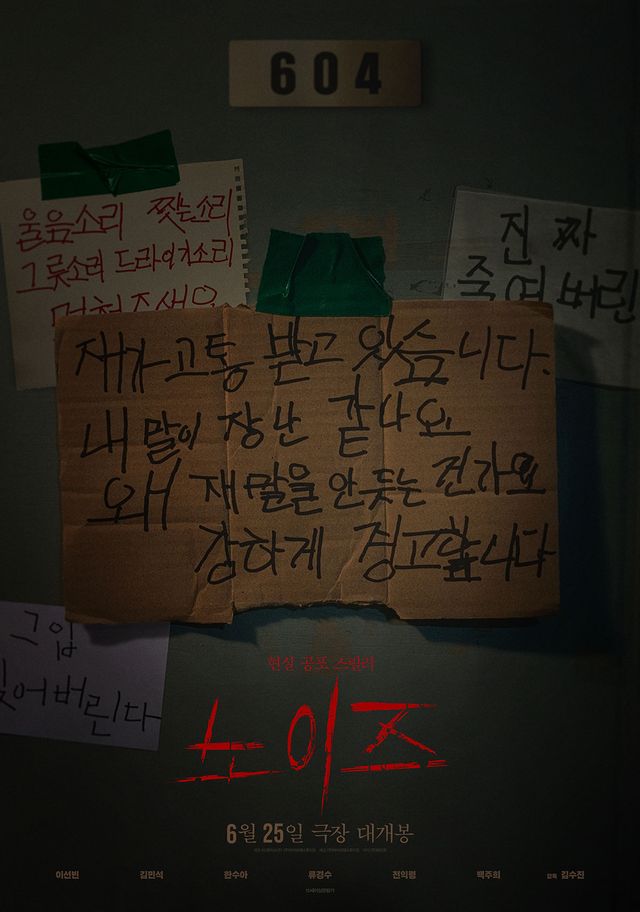 604
울음소리 찢는소리
그릇소리 드라이기소리
진짜
죽여버린
재가 고통 받고 있습니다.
내 말이 장난 같나요
왜 재 말을 안 듯는 건가요
강하게 경고합니다
그입
찢어버린다
현실 공포 스릴러
노이즈
6월 25일 극장 대개봉
이선빈 김민석 한수아 류경수 전익령 백주희 감독 김수진